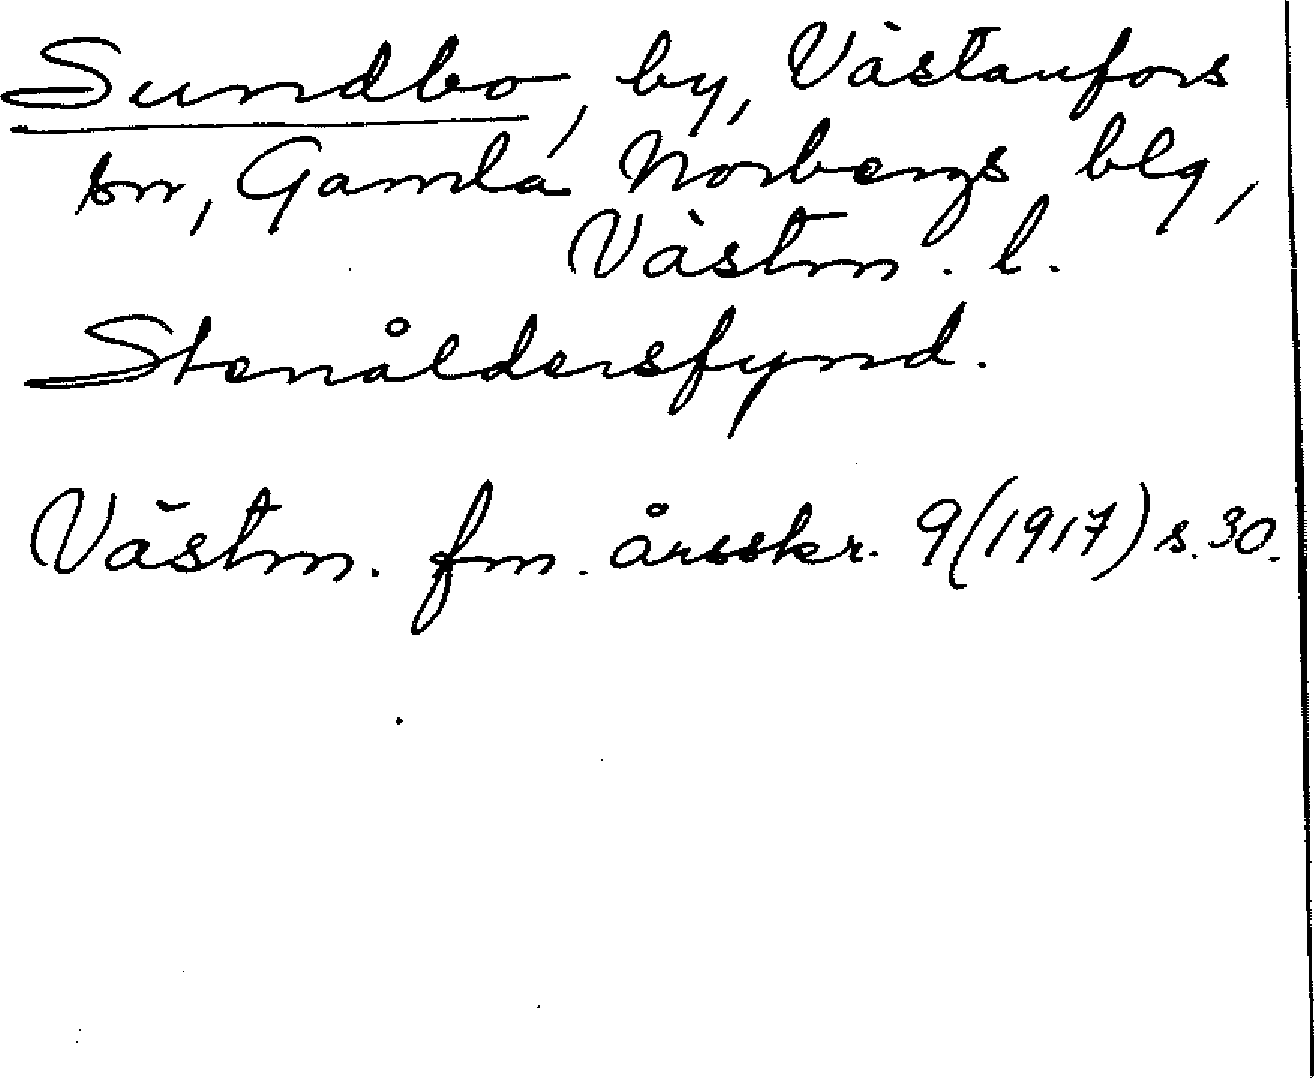 Sundbo, by, Västanfors
sn, Gamla Norbergs blg,
Västm. l.
Stenåldersfynd.
Västm. fm. årsskr. 9 (1917) s. 30.